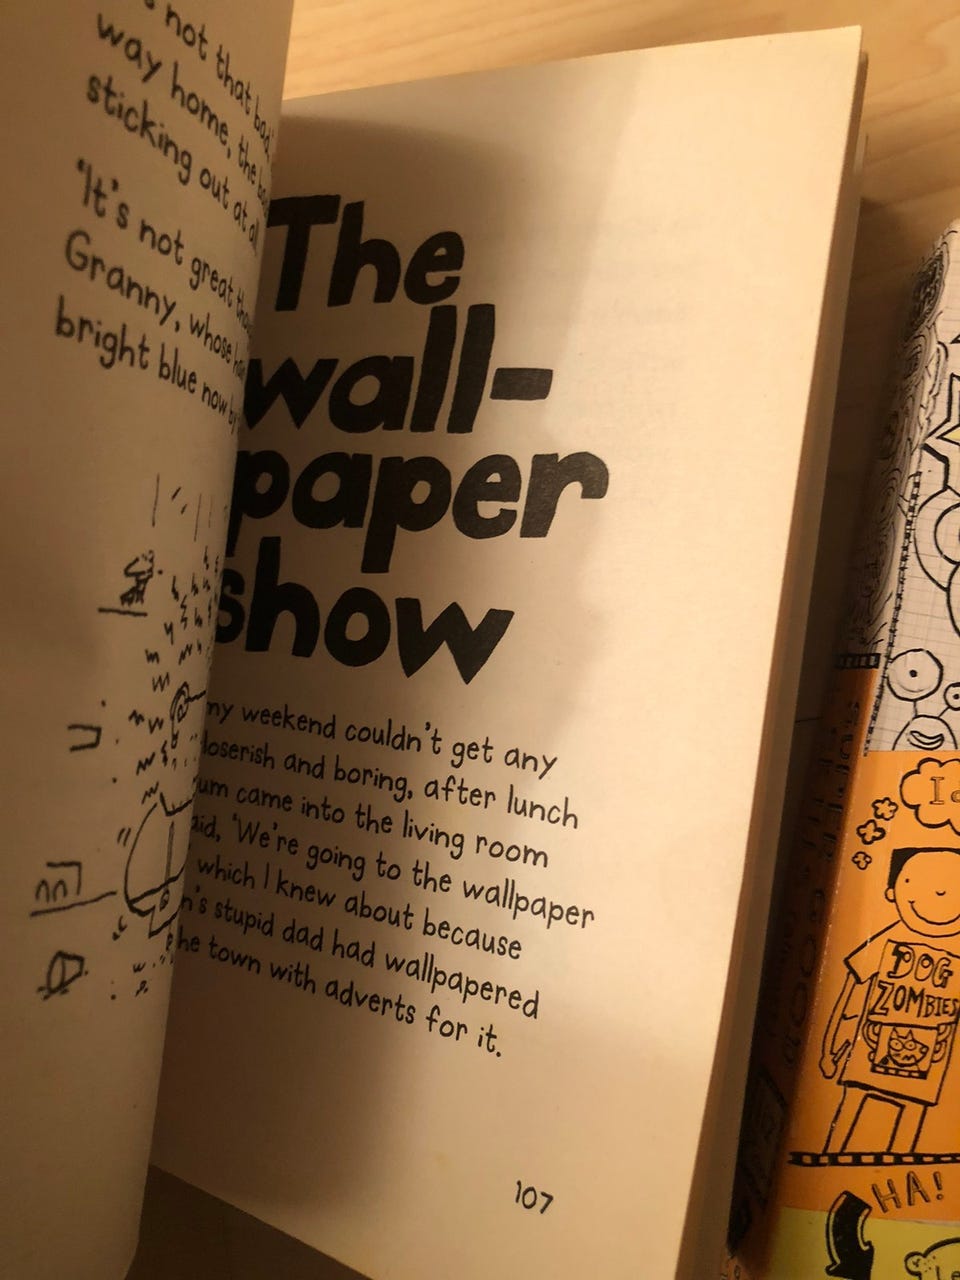 not that bad,'
way home, the
sticking out at all
'It's not great
Granny, whose
bright blue now by
The
wall-
paper
show
my weekend couldn't get any
loserish and boring, after lunch
um came into the living room
aid, 'We're going to the wallpaper
which I knew about because
n's stupid dad had wallpapered
he town with adverts for it.
107
I
DOG
ZOMBIES
HA!